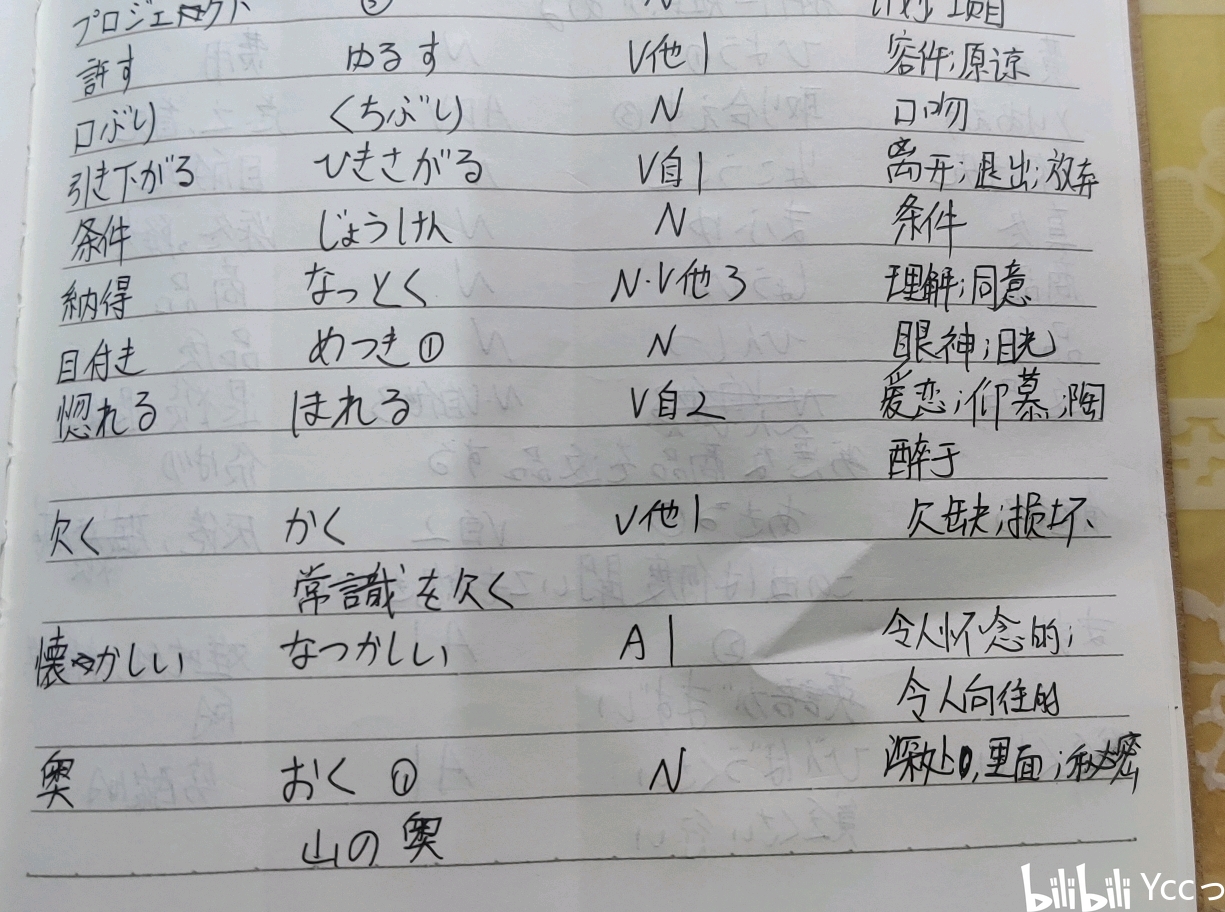 プロジェクト ② N 计划;项目
許す ゆるす V他1 容件;原谅
口ぶり くちぶり N 口吻
引き下がる ひきさがる V自1 离开;退出;放弃
条件 じょうけん N 条件
納得 なっとく N·V他3 理解;同意
目付き めつき① N 眼神;目光
惚れる ほれる V自2 爱恋;仰慕;陶
醉于
欠く かく V他1 欠缺;损坏
常識を欠く
懐かしい なつかしい A1 令人怀念的;
令人向往的
奥 おく① N 深处,里面;秘密
山の奥
bilibili Yccっ